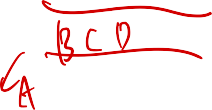 B C D
A